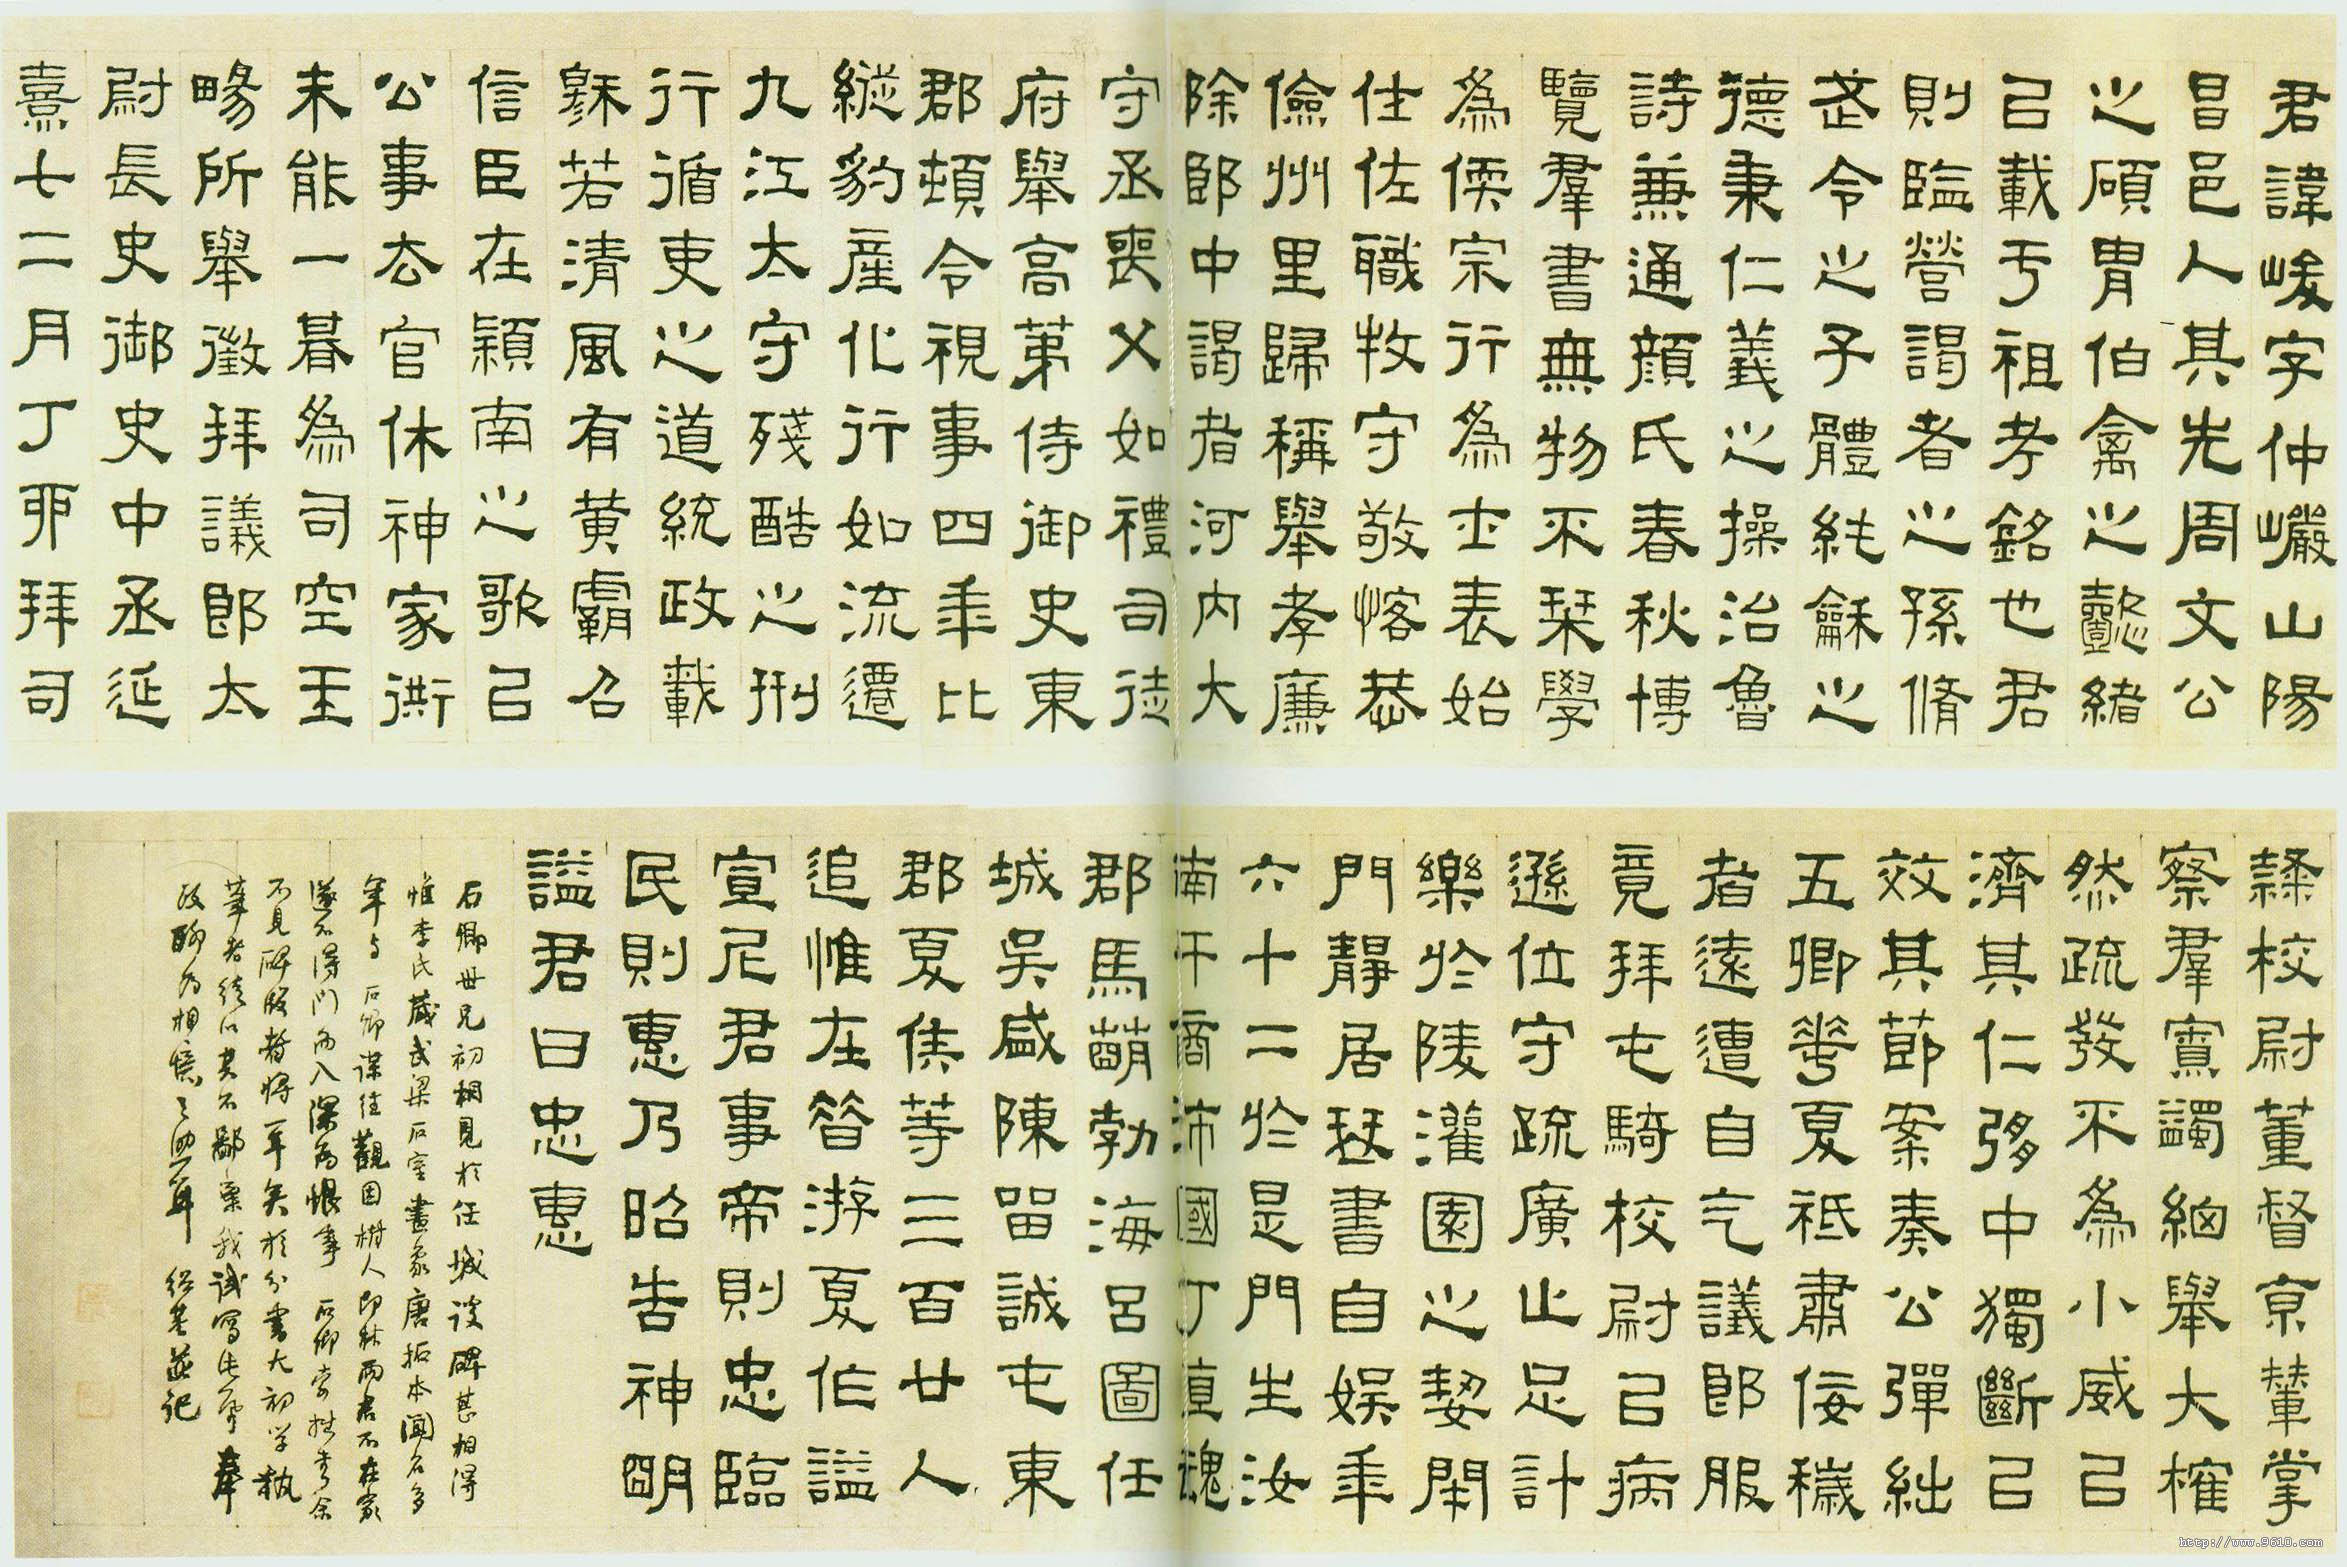 君諱峻字仲巖山陽
昌邑人其先周文公
之碩胄伯禽之懿緒
㠯載于祖考銘也君
則監營謁者之孫脩
武令之子體純龢之
德秉仁義之操治魯
詩兼通顏氏春秋博
覽羣書無物不栞學
為傡宗行為士表始
仕佐職牧守敬恪恭
儉州里歸稱舉孝廉
除郎中謁者河內大
守丞喪父如禮司徒
府舉高第侍御史東
郡頓令視事四年比
縱豹產化行如流遷
九江太守殘酷之刑
行循吏之道統政載
穌若清風有黃霸召
信臣在穎南之歌㠯
公事去官休神家衖
未能一朞為司空王
暢所舉徵拜議郎太
尉長史御史中丞延
熹七二月丁卯拜司
隸校尉董督京輦掌
察羣寮蠲細舉大榷
然疏發不為小威㠯
濟其仁弸中獨斷㠯
效其節案奏公彈絀
五卿華夏祗肅佞穢
者遠遭自乞議郎服
竟拜屯騎校尉㠯病
遜位守疏廣止足計
樂於陵灌園之契閑
門靜居琴書自娛年
六十二於是門生汝
南干商沛國丁直魏
郡馬萌勃海呂圖任
城吳盛陳留誠屯東
郡夏侯等三百廿人
追惟在昔游夏作謚
宣尼君事帝則忠臨
民則惠乃昭告神明
謚君曰忠惠
石卿世兄初相見於任城談碑甚相得
惟李氏藏武梁石室畫象唐拓本聞名多
年與石卿謀往觀因樹人即秋兩君不在家
遂不得門而入深為恨事 石卿
不見碑版者將一年矣於分書大初學執
筆者 以其不鄙棄我試寫
故聊為相憶之